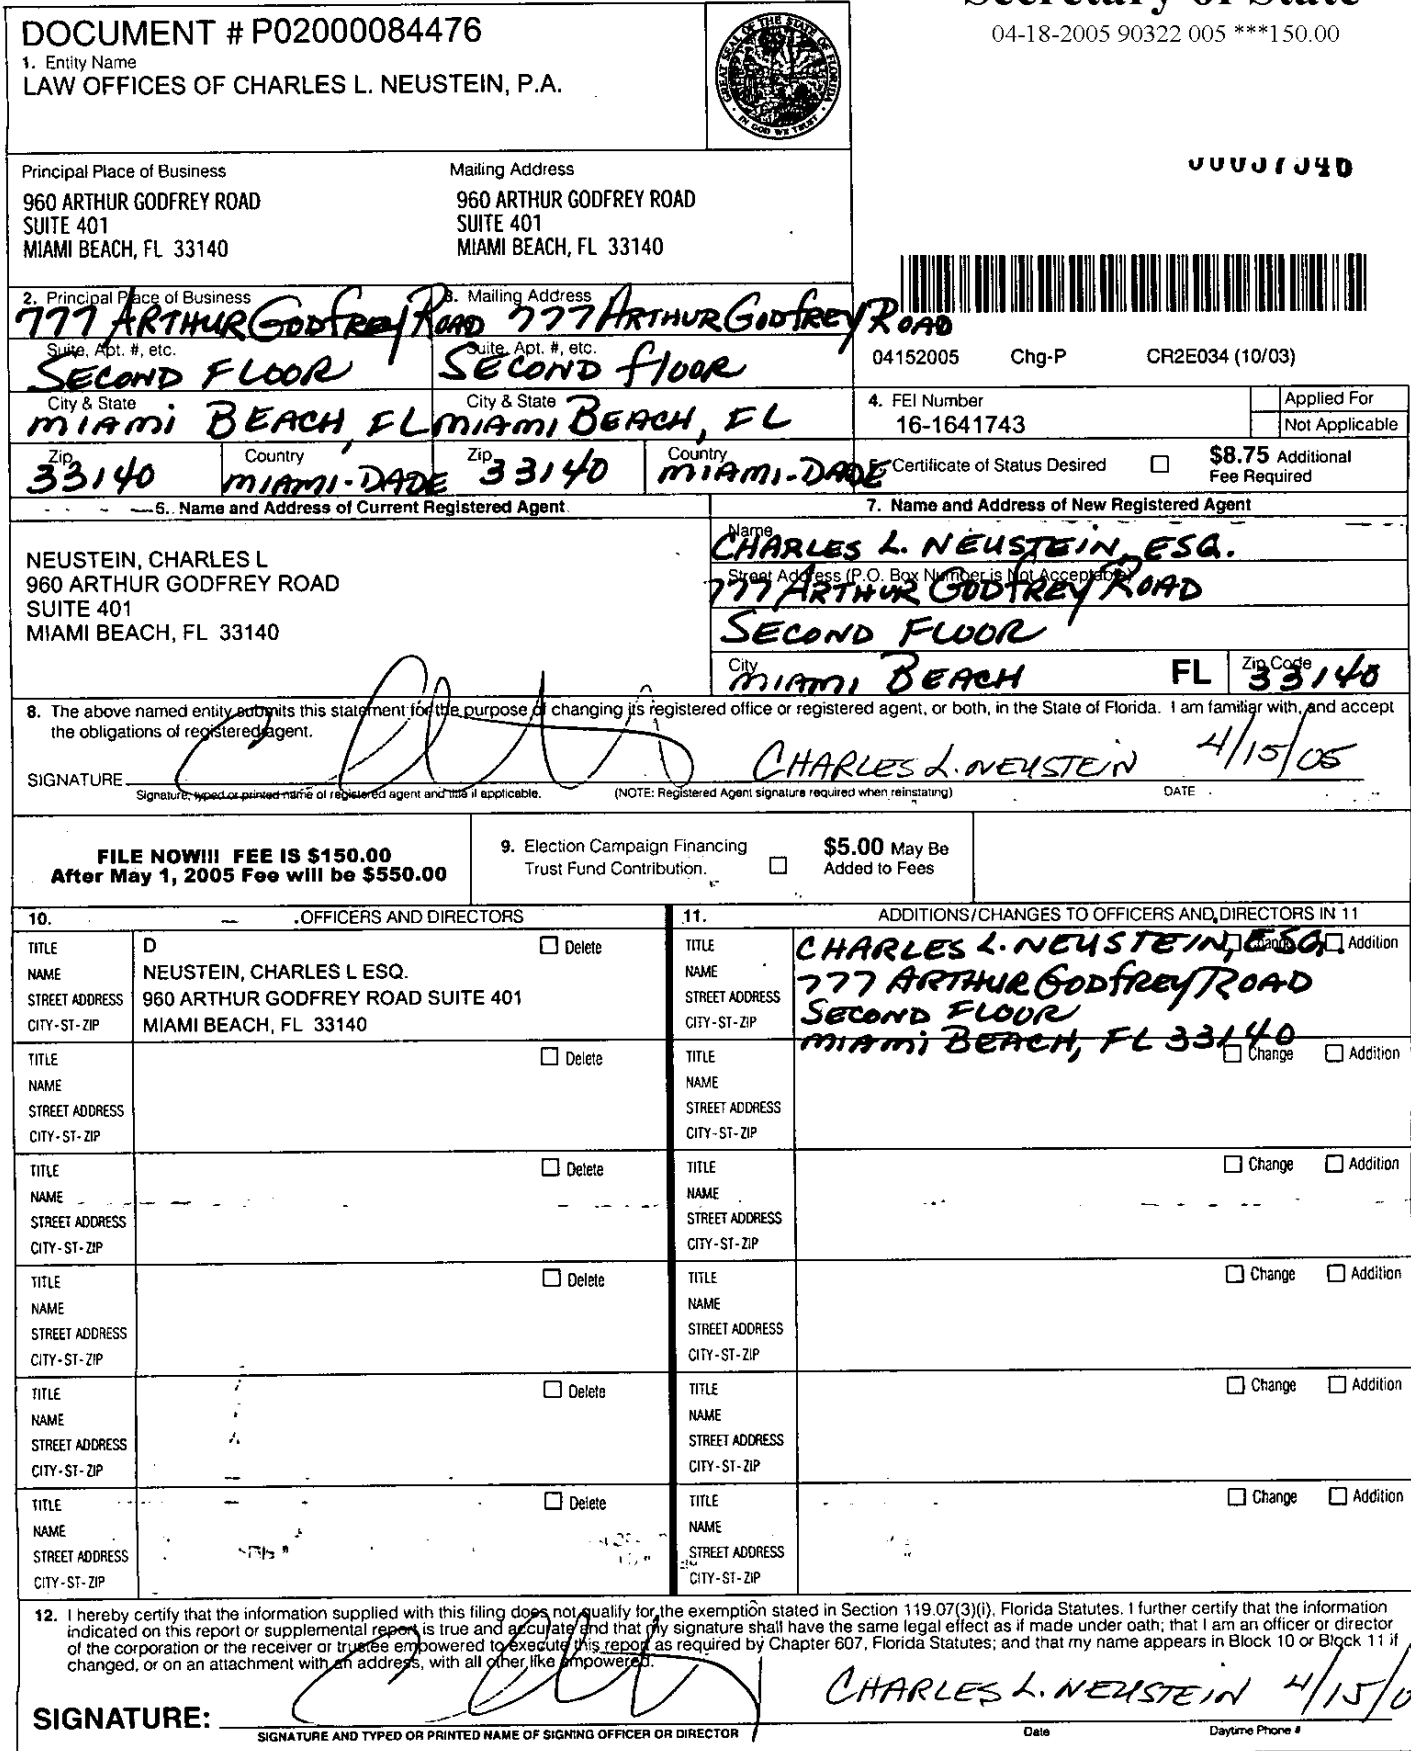 Secretary of State
04-18-2005 90322 005 ***150.00
DOCUMENT # P02000084476
1. Entity Name
LAW OFFICES OF CHARLES L. NEUSTEIN, P.A.
GREAT SEAL OF THE STATE OF FLORIDA
IN GOD WE TRUST
Principal Place of Business
960 ARTHUR GODFREY ROAD
SUITE 401
MIAMI BEACH, FL 33140
Mailing Address
960 ARTHUR GODFREY ROAD
SUITE 401
MIAMI BEACH, FL 33140
2. Principal Place of Business
777 ARTHUR GODFREY ROAD
3. Mailing Address
777 ARTHUR GODFREY ROAD
Suite, Apt. #, etc.
SECOND FLOOR
Suite, Apt. #, etc.
SECOND FLOOR
04152005 Chg-P CR2E034 (10/03)
City & State
MIAMI BEACH, FL
City & State
MIAMI BEACH, FL
Zip
33140
Country
MIAMI-DADE
Zip
33140
Country
MIAMI-DADE
4. FEI Number
16-1641743
Applied For
Not Applicable
Certificate of Status Desired
$8.75 Additional
Fee Required
6. Name and Address of Current Registered Agent
NEUSTEIN, CHARLES L
960 ARTHUR GODFREY ROAD
SUITE 401
MIAMI BEACH, FL 33140
7. Name and Address of New Registered Agent
Name
CHARLES L. NEUSTEIN, ESQ.
Street Address (P.O. Box Number is Not Acceptable)
777 ARTHUR GODFREY ROAD
SECOND FLOOR
City
MIAMI BEACH
FL
Zip Code
33140
8. The above named entity submits this statement for the purpose of changing its registered office or registered agent, or both, in the State of Florida. I am familiar with, and accept
the obligations of registered agent.
SIGNATURE
CHARLES L. NEUSTEIN 4/15/05
Signature, typed or printed name of registered agent and title if applicable. (NOTE: Registered Agent signature required when reinstating) DATE
FILE NOW!!! FEE IS $150.00
After May 1, 2005 Fee will be $550.00
9. Election Campaign Financing
Trust Fund Contribution.
$5.00 May Be
Added to Fees
10. OFFICERS AND DIRECTORS
TITLE D Delete
NAME NEUSTEIN, CHARLES L ESQ.
STREET ADDRESS 960 ARTHUR GODFREY ROAD SUITE 401
CITY-ST-ZIP MIAMI BEACH, FL 33140
TITLE Delete
NAME
STREET ADDRESS
CITY-ST-ZIP
TITLE Delete
NAME
STREET ADDRESS
CITY-ST-ZIP
TITLE Delete
NAME
STREET ADDRESS
CITY-ST-ZIP
TITLE Delete
NAME
STREET ADDRESS
CITY-ST-ZIP
TITLE Delete
NAME
STREET ADDRESS
CITY-ST-ZIP
11. ADDITIONS/CHANGES TO OFFICERS AND DIRECTORS IN 11
TITLE CHARLES L. NEUSTEIN, ESQ. Change Addition
NAME 777 ARTHUR GODFREY ROAD
STREET ADDRESS SECOND FLOOR
CITY-ST-ZIP MIAMI BEACH, FL 33140
TITLE Change Addition
NAME
STREET ADDRESS
CITY-ST-ZIP
TITLE Change Addition
NAME
STREET ADDRESS
CITY-ST-ZIP
TITLE Change Addition
NAME
STREET ADDRESS
CITY-ST-ZIP
TITLE Change Addition
NAME
STREET ADDRESS
CITY-ST-ZIP
TITLE Change Addition
NAME
STREET ADDRESS
CITY-ST-ZIP
12. I hereby certify that the information supplied with this filing does not qualify for the exemption stated in Section 119.07(3)(i), Florida Statutes. I further certify that the information
indicated on this report or supplemental report is true and accurate and that my signature shall have the same legal effect as if made under oath; that I am an officer or director
of the corporation or the receiver or trustee empowered to execute this report as required by Chapter 607, Florida Statutes; and that my name appears in Block 10 or Block 11 if
changed, or on an attachment with an address, with all other like empowered.
SIGNATURE:
CHARLES L. NEUSTEIN 4/15/0
SIGNATURE AND TYPED OR PRINTED NAME OF SIGNING OFFICER OR DIRECTOR Date Daytime Phone #